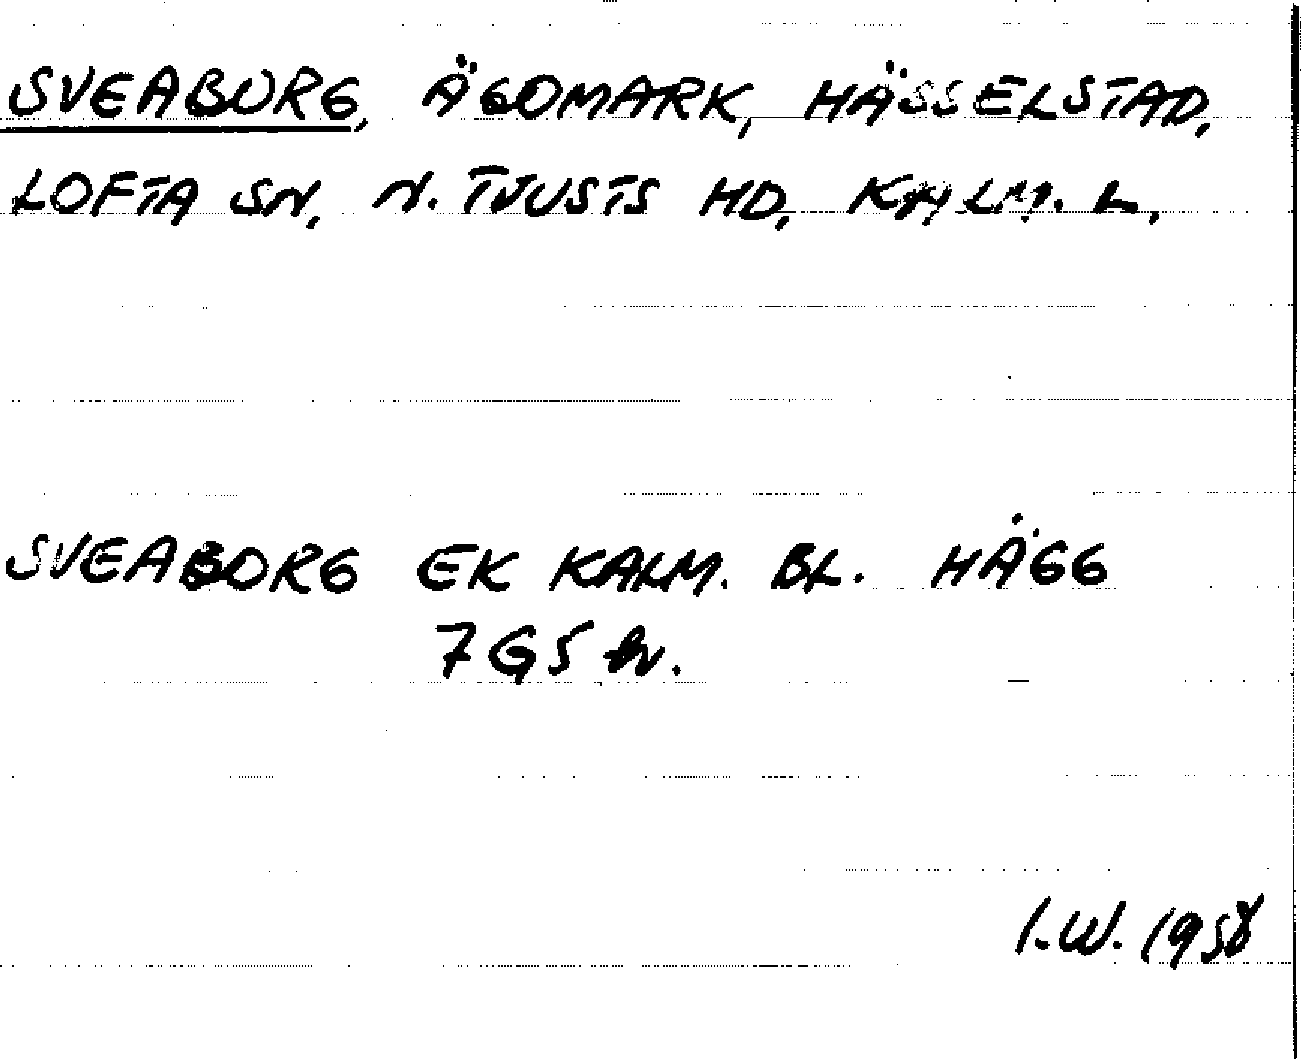 SVEABORG, ÄGOMARK, HÄSSELSTAD,
LOFTA SN, N. TJUSTS HD, KALM. L.
SVEABORG EK KALM. BL. HÄGG
7G5 hv.
I.W. 1958